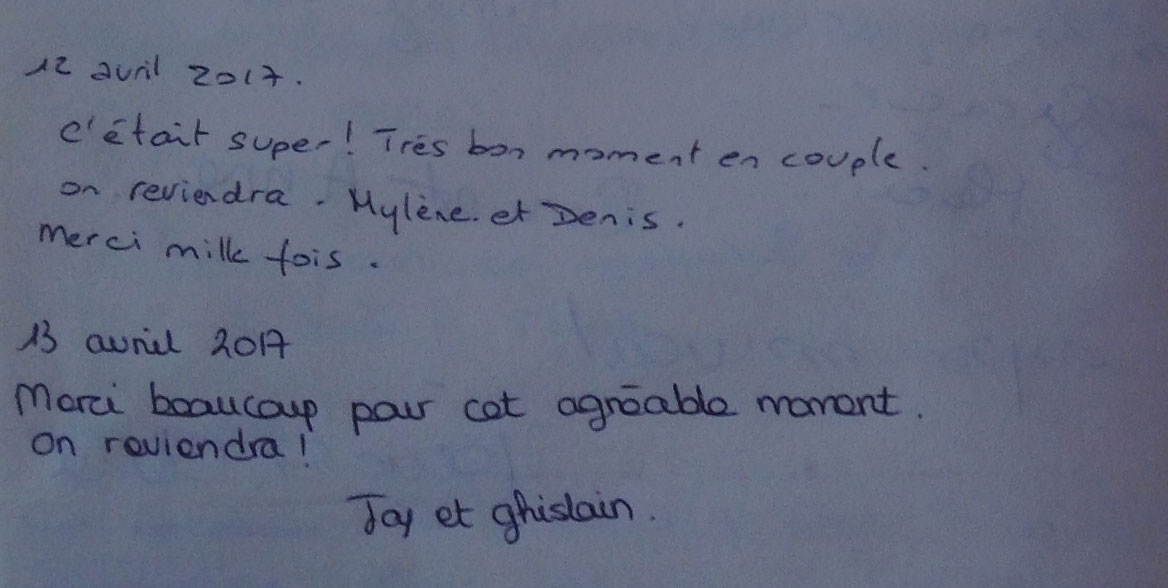 12 avril 2017.
C'était super! Très bon moment en couple.
on reviendra. Mylène et Denis.
Merci mille fois.
13 avril 2017
Merci beaucoup pour cet agréable moment.
On reviendra!
et ghislain.